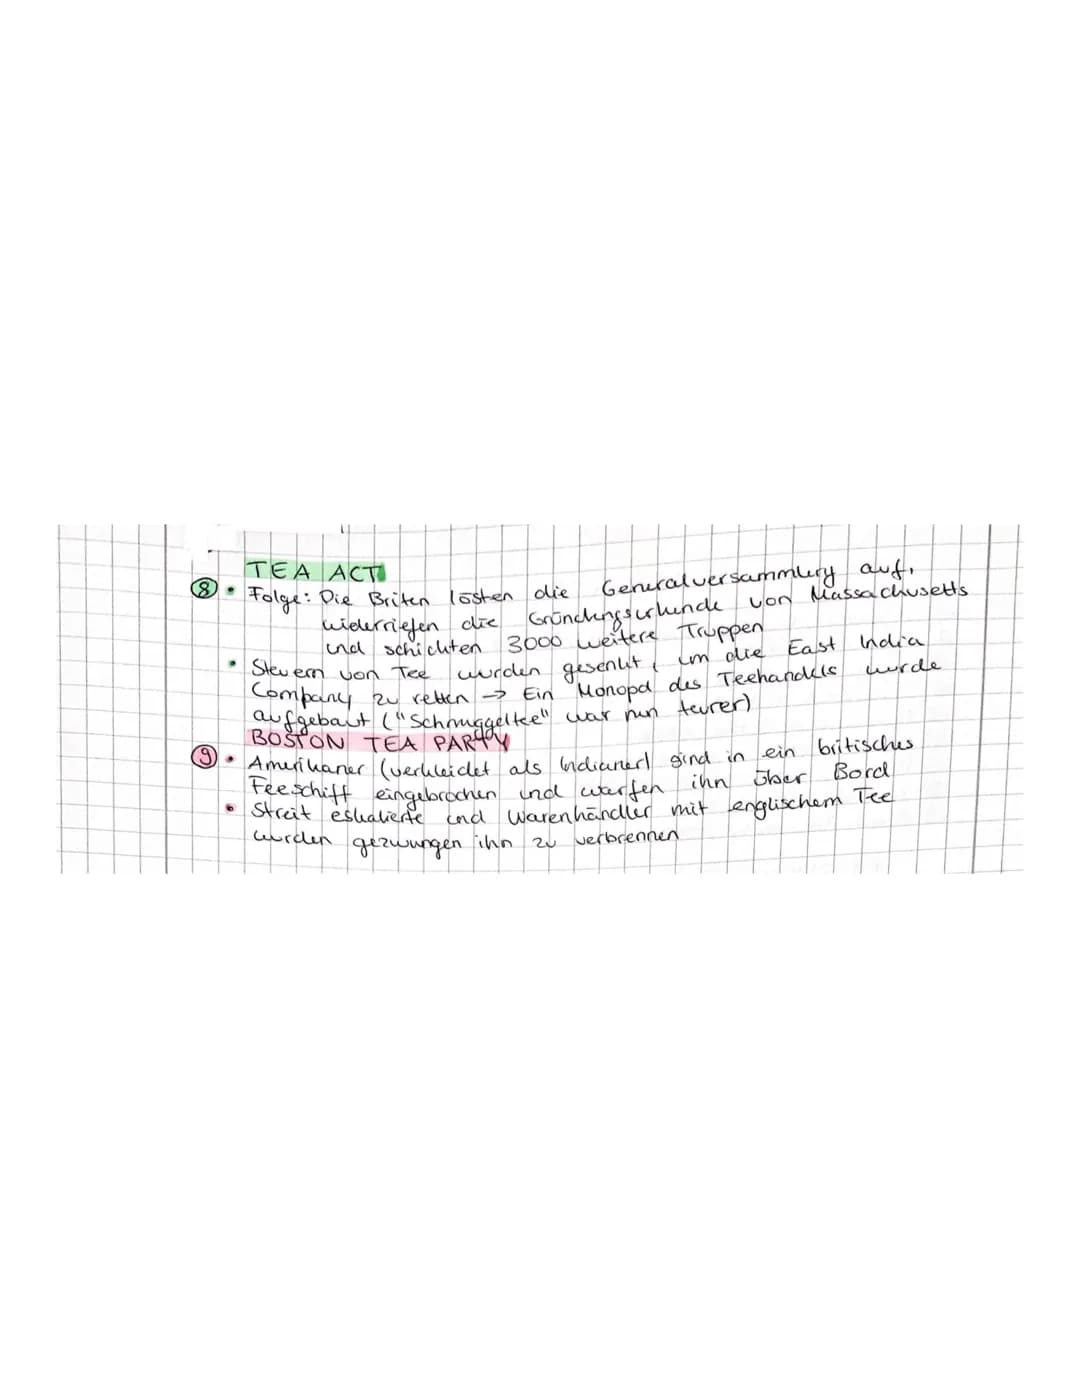 TEA ACT
8 • Folge: Die Briten lösten die Generalversammlung auf,
widerriefen die Gründungsurkunde von Massachusetts
und schickten 3000 weitere Truppen
• Steuern von Tee wurden gesenkt, um die East India
Company zu retten → Ein Monopol des Teehandels wurde
aufgebaut ("Schmuggeltee" war nun teurer)
BOSTON TEA PARTY
9 • Amerikaner (verkleidet als Indianer) sind in ein britisches
Teeschiff eingebrochen und warfen ihn über Bord
• Streit eskalierte und Warenhändler mit englischem Tee
wurden gezwungen ihn zu verbrennen